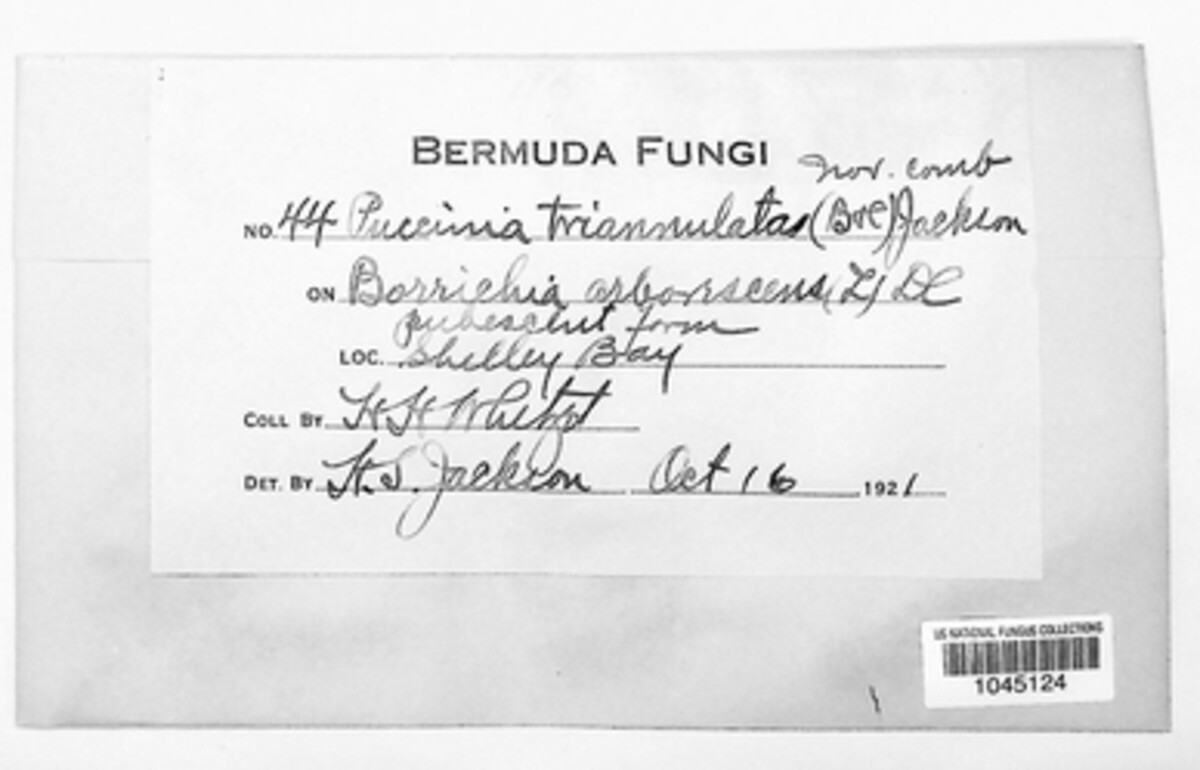 BERMUDA FUNGI
nov. comb
NO. 44 Puccinia triannulata (B&C) Jackson
ON Borrichia arborescens (L) DC
pubescent form
LOC. Shelley Bay
COLL BY H H Whetzel
DET. BY H. S. Jackson Oct 16 1921
US NATIONAL FUNGUS COLLECTIONS
1045124